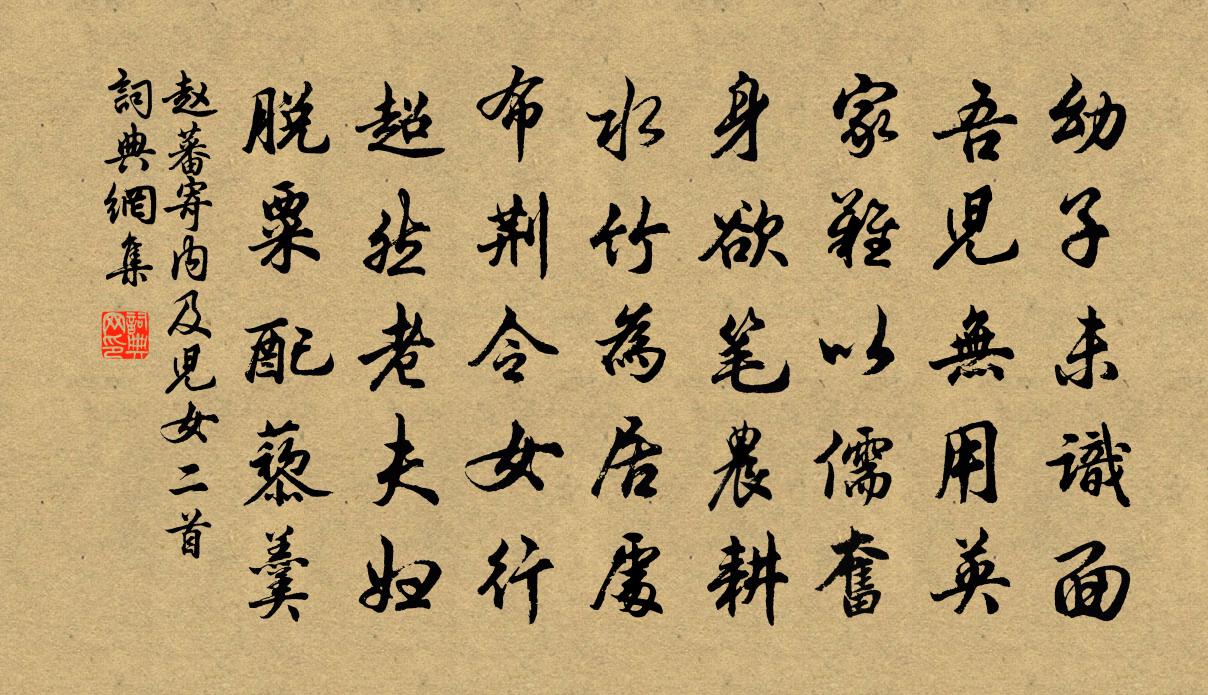 幼子未識面
吾児無用英
家難以儒奮
身欲笔農耕
水竹為居處
布荆令女行
超然老夫婦
脱粟配藜羹
赵蕃寄内及児女二首
詞典網集
詞典网印